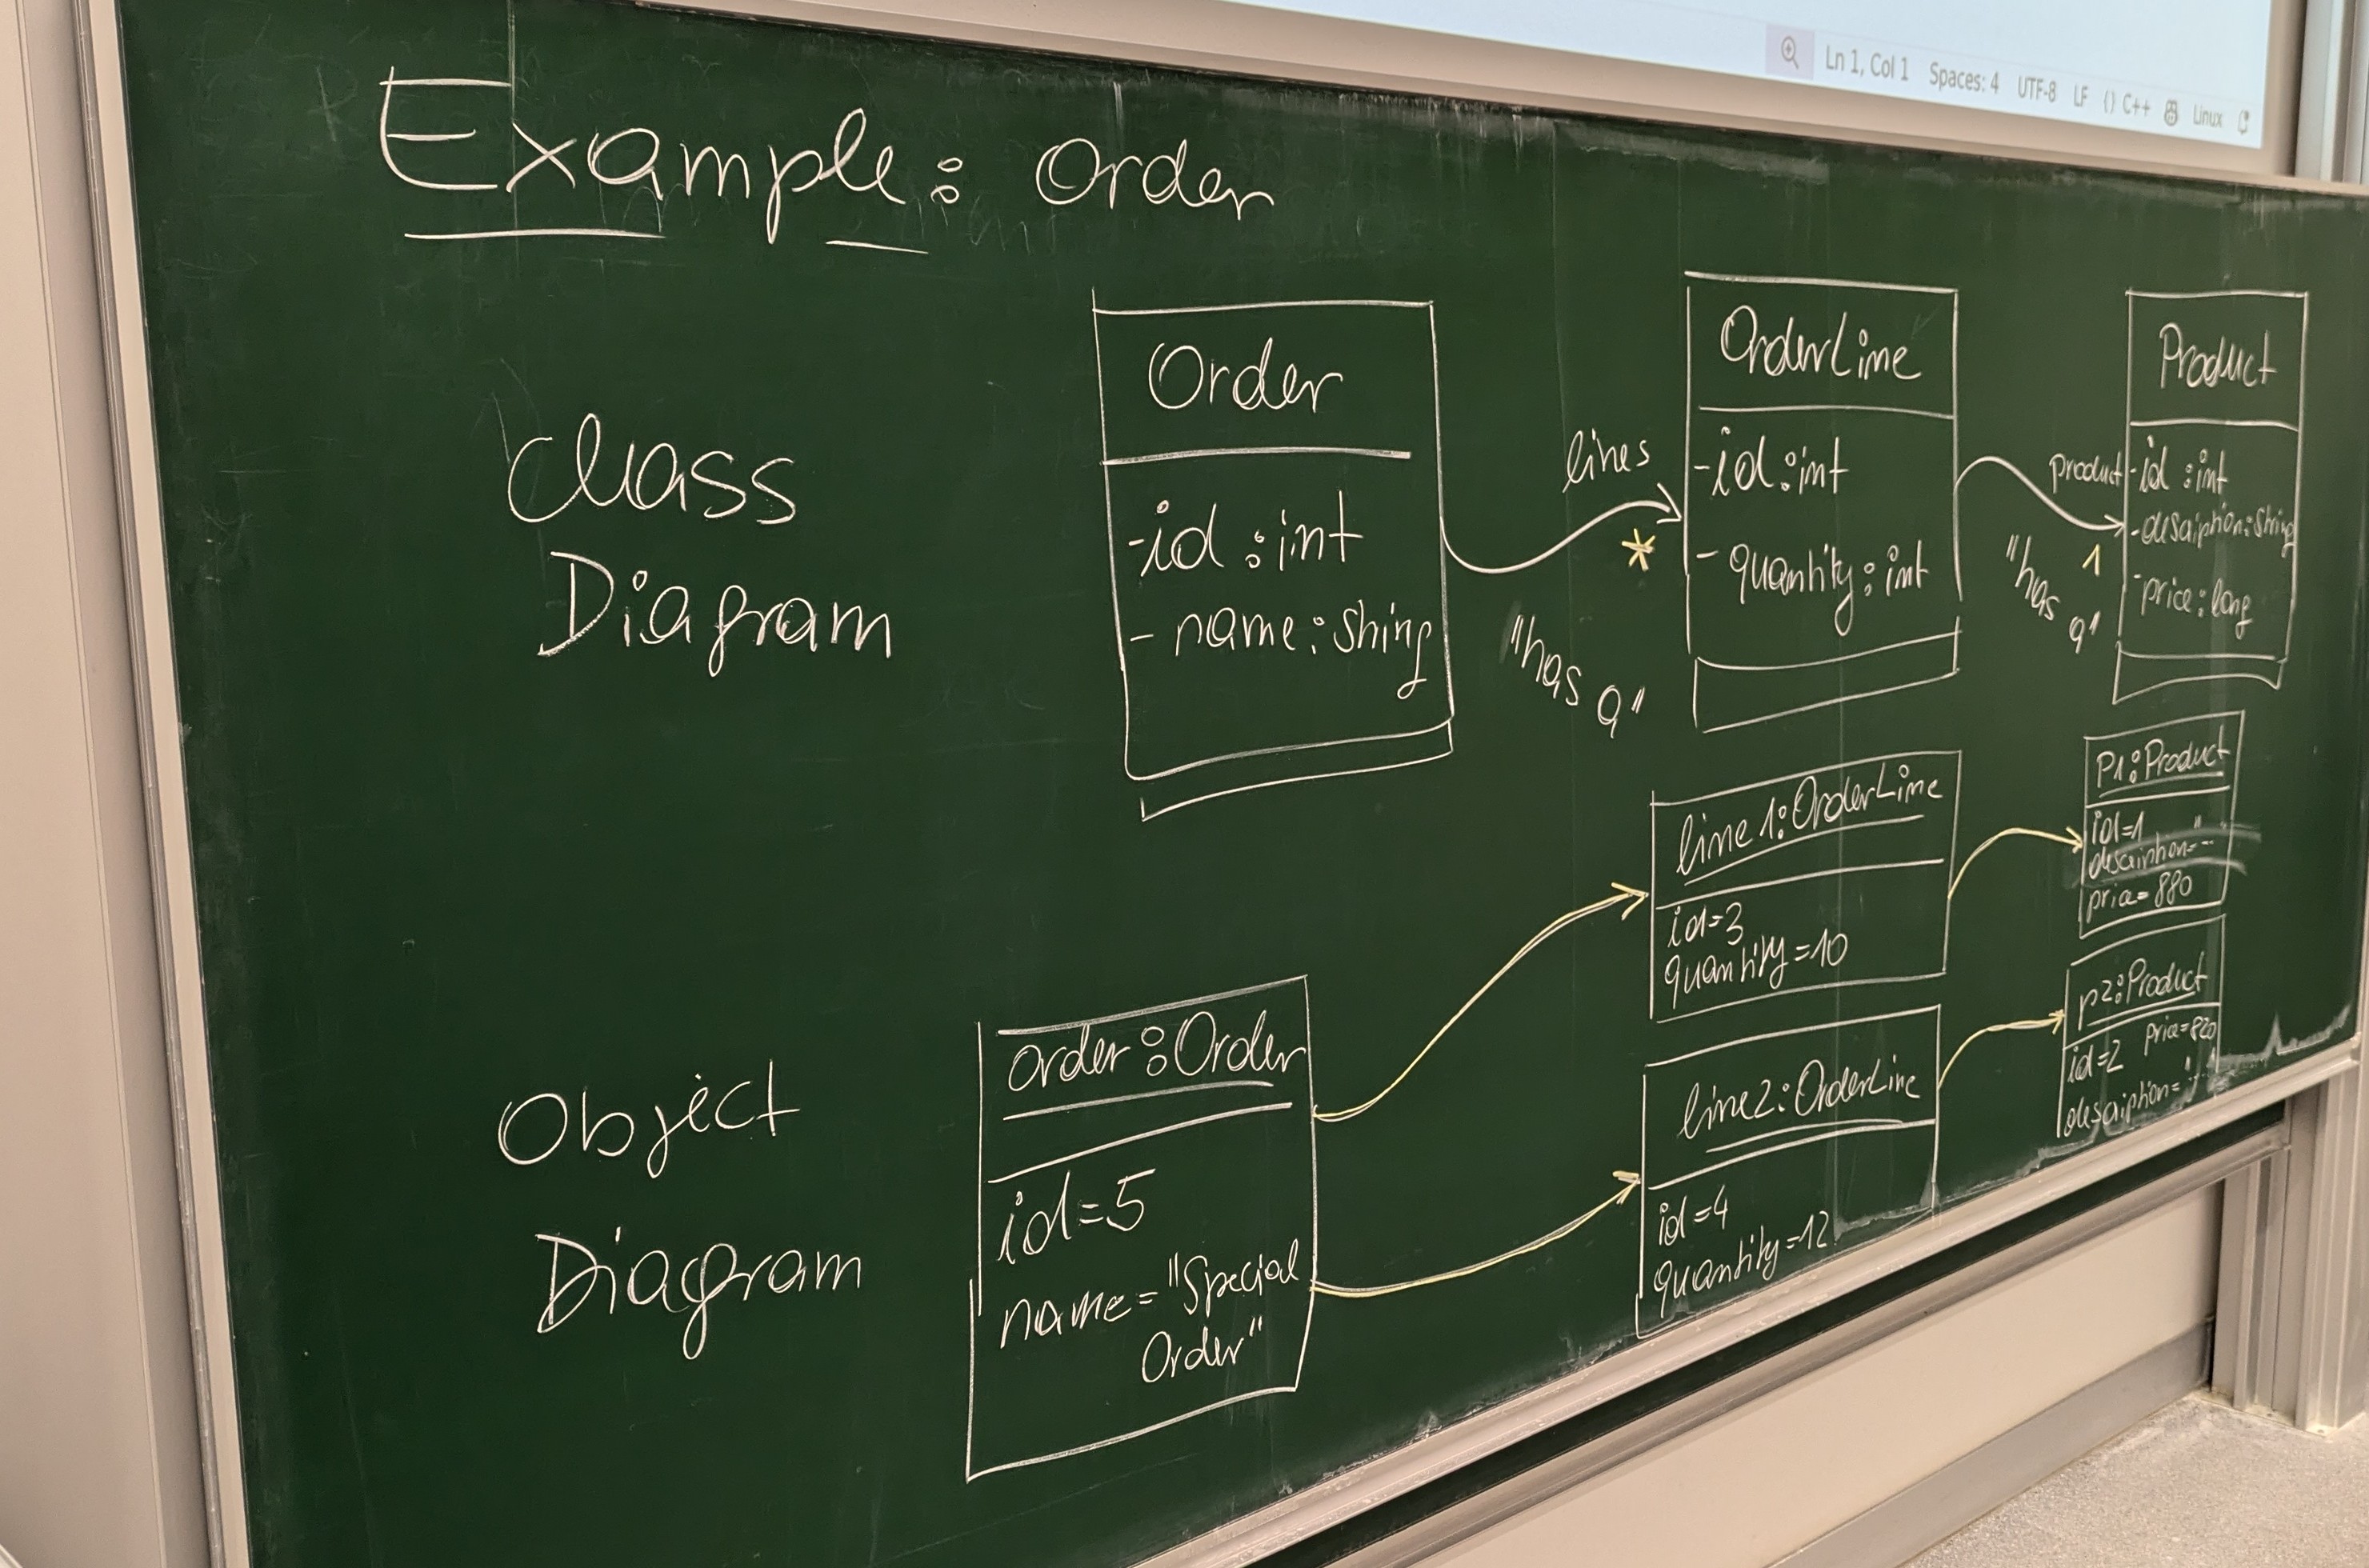 Ln 1, Col 1 Spaces: 4 UTF-8 LF {} C++ Linux
Example: Order
Class
Diagram
Order
-id:int
- name: String
lines
*
"has a"
OrderLine
-id:int
- quantity: int
product
1
"has a"
Product
-id:int
-description:String
-price:long
Object
Diagram
order:Order
id=5
name="Special
Order"
line1:OrderLine
id=3
quantity=10
line2:OrderLine
id=4
quantity=12
P1:Product
id=1
description=
price=880
p2:Product
price=820
id=2
description="..."